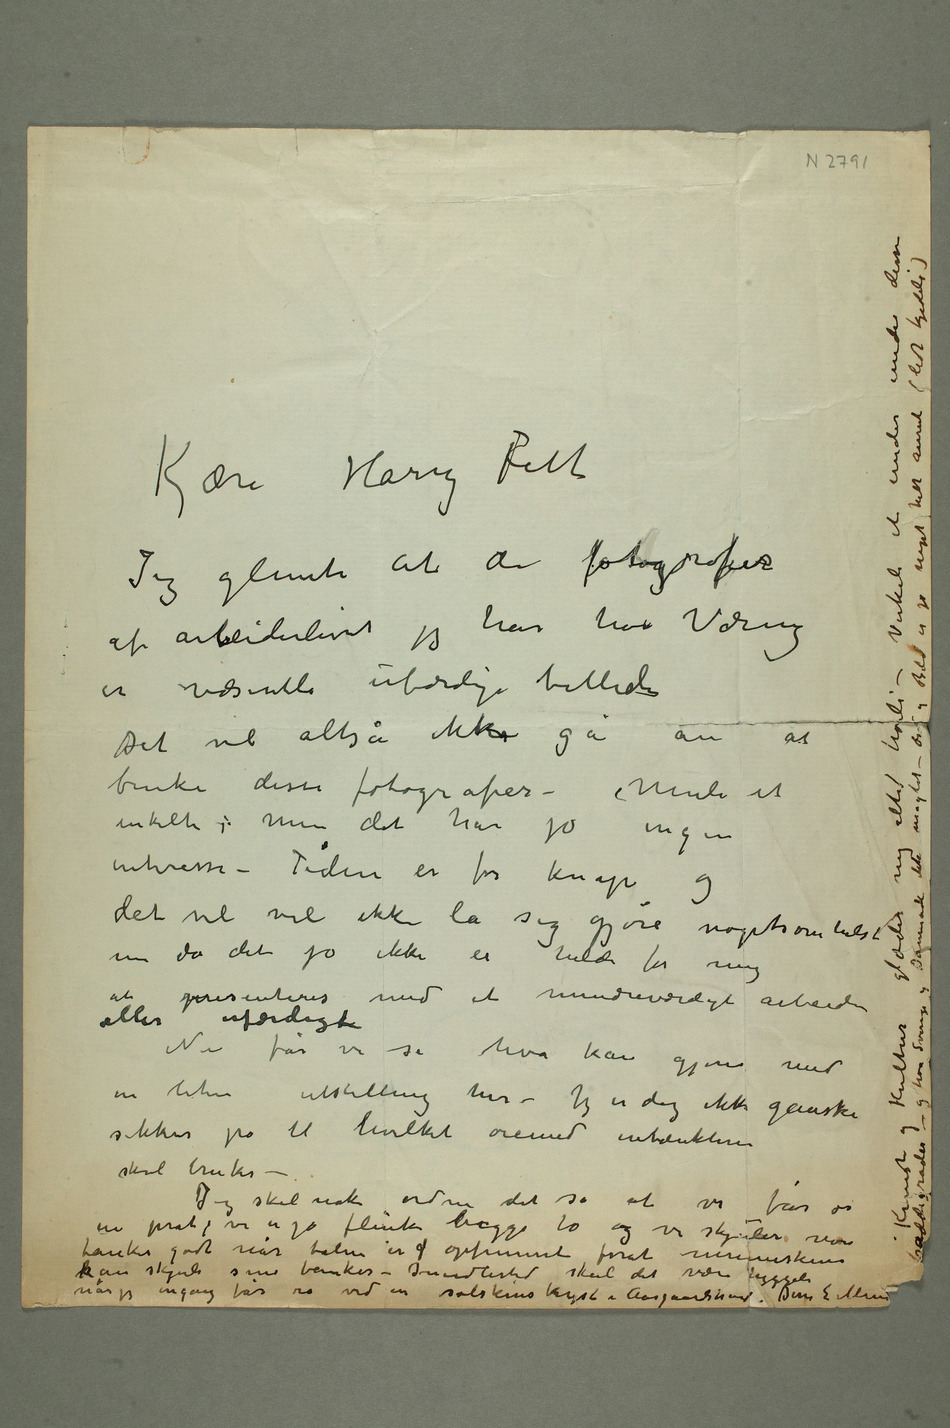 N 2791
Kjære Harry Fett
Jeg glemte at de fotografier
af arbeiderlivet jeg har hos Væring
er væsentli ufærdige billeder
Det vil altså ikke gå an at
bruke disse fotografier – Muli et
enkelte; men det har jo ingen
interesse – Tiden er for knap og
det vil vel ikke la sig gjøre nogetsomhelst
nu da det jo ikke er heldi for mig
at presenteres med et mindreværdigt arbeide
eller ufærdigt
Nu får vi se hva kan gjøres med
en liten utstilling her – Jeg er dog ikke ganske
sikker på til hvilket øiemed inntækterne
skal brukes –
Jeg skal nok ordne det så at vi får os
en prat; vi er jo flinke begge to og vi skjuler vore
tanker godt når talen er opfunnet forat menneskene
kan skjule sine tanker – Imidlertid skal det være hyggeli
når jeg engang får ro ved en solskinskyst i Aasgaardstrand. Deres E Munch
Kunst og Kultur glæder mig altid – Virkeli et under under disse
himmelstrøg og Danmark ikke magtet – det er jo noget helt andet (lidt kjedeli)